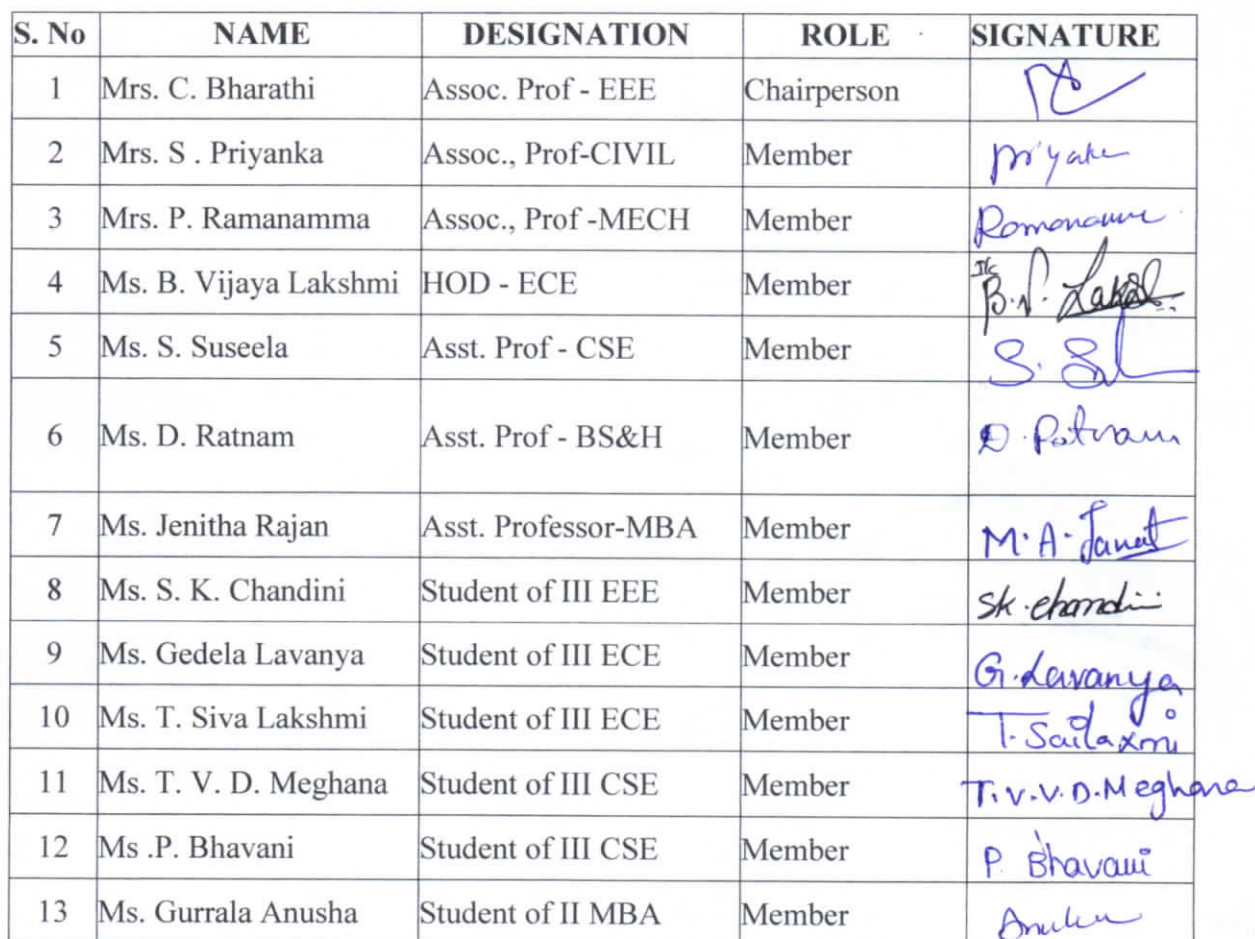 S. No NAME DESIGNATION ROLE SIGNATURE
1 Mrs. C. Bharathi Assoc. Prof - EEE Chairperson
2 Mrs. S . Priyanka Assoc., Prof-CIVIL Member
3 Mrs. P. Ramanamma Assoc., Prof -MECH Member
4 Ms. B. Vijaya Lakshmi HOD - ECE Member
5 Ms. S. Suseela Asst. Prof - CSE Member
6 Ms. D. Ratnam Asst. Prof - BS&H Member
7 Ms. Jenitha Rajan Asst. Professor-MBA Member M.A.
8 Ms. S. K. Chandini Student of III EEE Member
9 Ms. Gedela Lavanya Student of III ECE Member G. Lavanya
10 Ms. T. Siva Lakshmi Student of III ECE Member T. Sailaxmi
11 Ms. T. V. D. Meghana Student of III CSE Member T.V.V.D.Meghana
12 Ms .P. Bhavani Student of III CSE Member P. Bhavani
13 Ms. Gurrala Anusha Student of II MBA Member